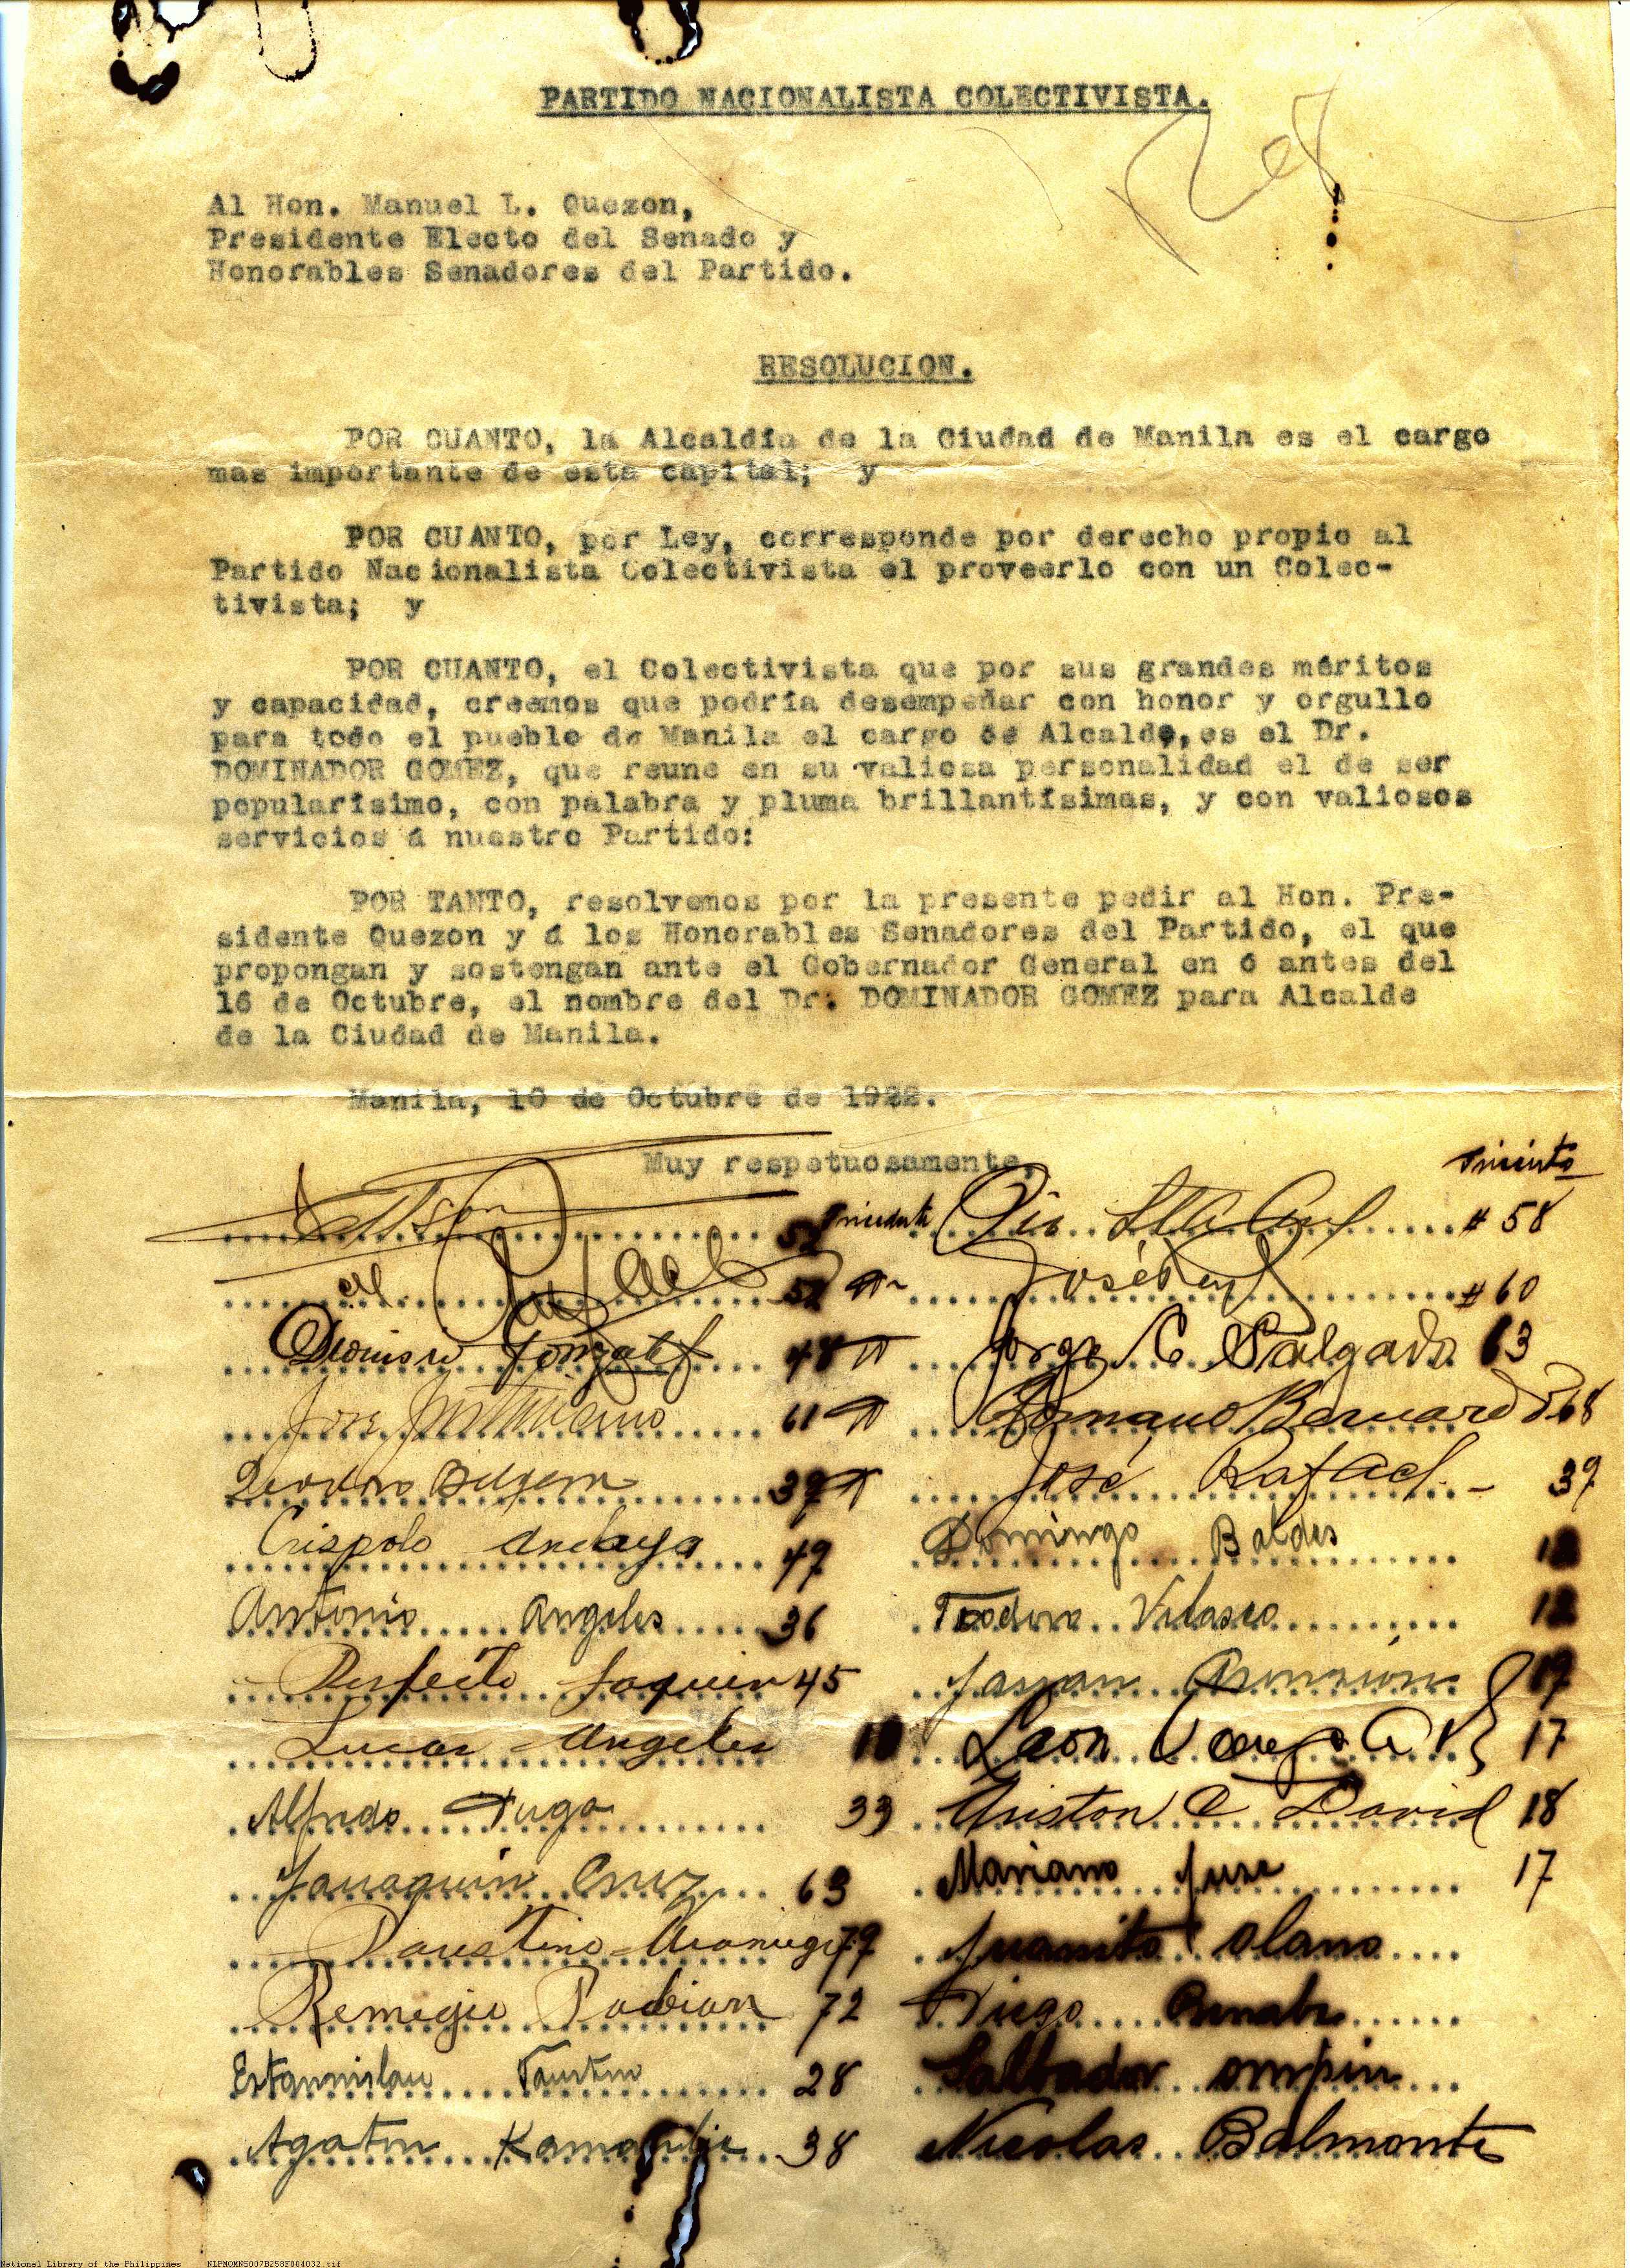 PARTIDO NACIONALISTA COLECTIVISTA.
Al Hon. Manuel L. Quezon,
Presidente Electo del Senado y
Honorables Senadores del Partido.
RESOLUCION.
POR CUANTO, la Alcaldía de la Ciudad de Manila es el cargo
mas importante de esta capital; y
POR CUANTO, por Ley, corresponde por derecho propio al
Partido Nacionalista Colectivista el proveerlo con un Colec-
tivista; y
POR CUANTO, el Colectivista que por sus grandes méritos
y capacidad, creemos que podría desempeñar con honor y orgullo
para todo el pueblo de Manila el cargo de Alcalde, es el Dr.
DOMINADOR GOMEZ, que reune en su valiosa personalidad el de ser
popularísimo, con palabra y pluma brillantísimas, y con valiosos
servicios á nuestro Partido:
POR TANTO, resolvemos por la presente pedir al Hon. Pre-
sidente Quezon y á los Honorables Senadores del Partido, el que
propongan y sostengan ante el Gobernador General en ó antes del
16 de Octubre, el nombre del Dr. DOMINADOR GOMEZ para Alcalde
de la Ciudad de Manila.
Manila, 10 de Octubre de 1922.
Muy respetuosamente,
# 58
# 60
Dionisio Gonzalez 48 Jorge C. Salgado 63
Jose 61 Bernardo 68
39 José Rafael 39
Crispolo Andaya 49 Domingo Baldes 12
Antonio Angeles 36 Teodoro Velasco 12
Perfecto Joquin 45 Asuncion 19
Lucas Angeles 10 Leon 17
Alfredo Puga 33 C David 18
Jauaquin Cruz 63 Mariano Jusa 17
Faustino 79 Juanito Olano
Remegio Pabian 72 Diego
Estannislau Faustin 28 Salbador ompin
Agaton 38 Nicolas Balmonte
National Library of the Philippines NLPMQMNS007B258F004032.tif